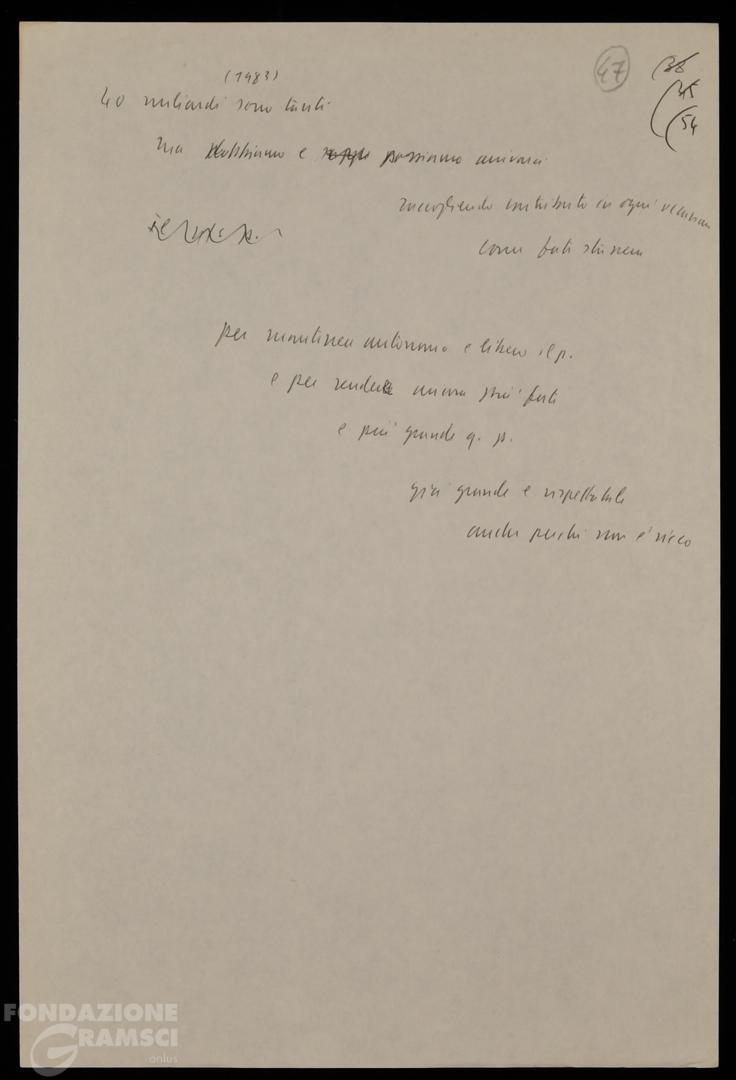 (1983)
47
38
45
54
40 miliardi sono tanti
ma dobbiamo e possiamo arrivarci
raccogliendo contributo in ogni occasione
come
per mantenere autonomo e libero il p.
e per rendere ancora più forte
e più grande q. p.
già grande e rispettabile
anche perché non è ricco
FONDAZIONE
GRAMSCI
onlus